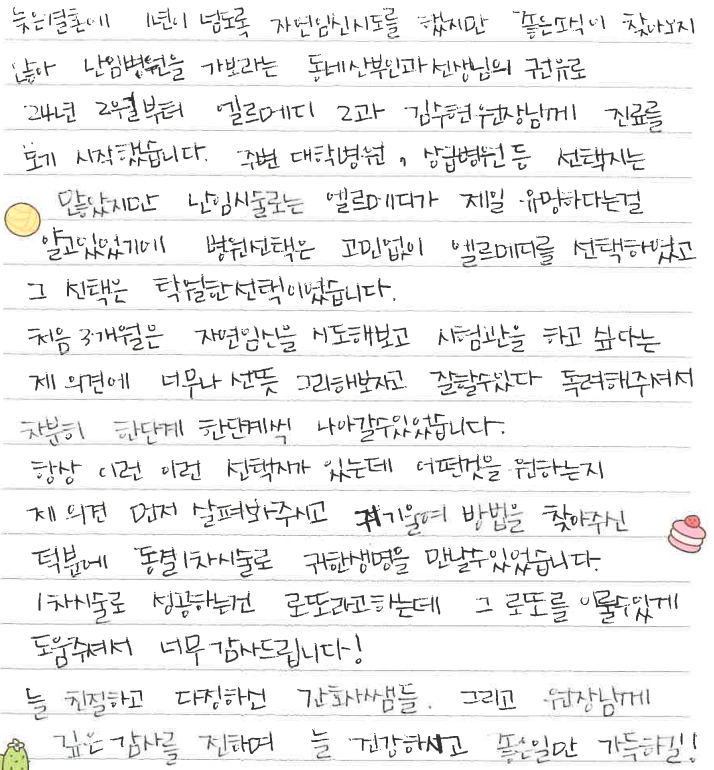 늦은결혼에 1년이 넘도록 자연임신시도를 했지만 좋은소식이 찾아오지
않아 난임병원을 가보라는 동네산부인과선생님의 권유로
24년 2월부터 엘르메디 2과 김수현원장님께 진료를
보기 시작했습니다. 주변 대학병원, 상급병원등 선택지는
많았지만 난임시술로는 엘르메디가 제일 유망하다는걸
알고있었기에 병원선택은 고민없이 엘르메디를 선택하였고
그 선택은 탁월한선택이였습니다.
처음 3개월은 자연임신을 시도해보고 시험관을 하고 싶다는
제 의견에 너무나 선뜻 그리해보자고 잘할수있다 독려해주셔서
차분히 한단계 한단계씩 나아갈수있었습니다.
항상 이런 이런 선택지가 있는데 어떤것을 원하는지
제 의견 먼저 살펴봐주시고 귀기울여 방법을 찾아주신
덕분에 동결1차시술로 귀한생명을 만날수있었습니다.
1차시술로 성공하는건 로또라고하는데 그 로또를 이룰수있게
도움주셔서 너무 감사드립니다!
늘 친절하고 다정하신 간호사쌤들. 그리고 원장님께
깊은 감사를 전하며 늘 건강하시고 좋은일만 가득하길!